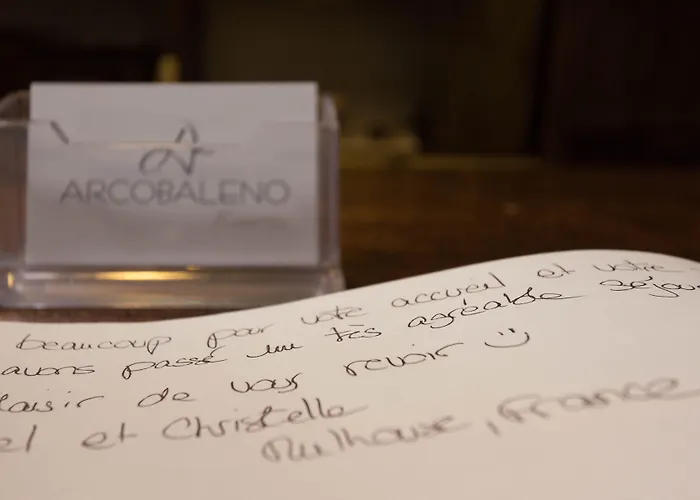 ARCOBALENO
beaucoup pour votre accueil et votre
avons passé un très agréable séjou
laisir de vous revoir :)
el et Christelle
Mulhouse, France